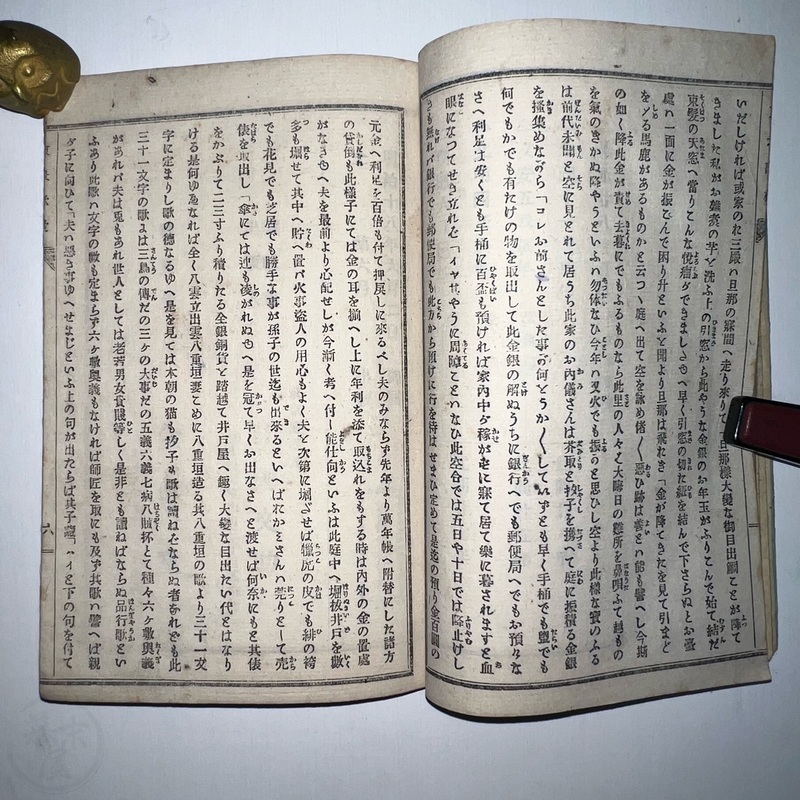 いだしければ或家のお三殿ハ旦那の寐間へ走り來りて旦那樣大變な御目出铜ことが降て
きました私がお雜煮の芋を洗ふ上の引窓から此やうな金銀のお年玉がふりこんで始て結だ
束髮の天窓へ當りこんな悦瘤ができましたゆへ早く引窓の切た紐を結んで下さらぬとお臺
處ハ一面に金が振こんで困り升といふと聞より旦那は飛おき「金が降てきたを見て引まど
をゾる馬鹿があるものかと云つゝ庭へ出て空を詠め偖〱惡ひ跡は善と能も譬へし今朝
の如く降此金が貰て去暮にでもふるものなら此里の人々も大晦日の難所を鼻唄ふて越もの
を氣のきかぬ降やうといふハ勿体なひ今年ハ現火でも振うと思ひし空より此樣な寳のふる
は前代未聞と空に見とれて居うち此家のお内儀さんは芥取と杓子を携へて庭に振積る金銀
を搔集めながら「コレお前さんとした事が何とうか〱して居ずとも早く手桶でも盥でも
何でもかでも有たけの物を取出して此金銀の解ぬうちに銀行へでも郵便局へでもお預なな
さへ利足は安くとも手桶に百盃も預ければ家內中が稼がもに寐て居て樂に暮されますと血
眼になつてせき立れど「イヤ其やうに周障ことハなひ此空合では五日や十日では降止けし
きも無れバ銀行でも郵便局でも此方から預けに行を待はせまひ定めて是迄の預り金百圓の
元金へ利足を百倍も付て押戻しに來るべし夫のみならず先年より萬年帳へ附替にした諸方
の貸倒も此樣子にては金の耳を揃へし上に年利を添て取込れをもする時は內外の金の置處
がなきゆへ夫を最前より心配せしが今漸く考へ付し能仕向といふは此庭中へ堀拔井戸を數
多も堀せて其中へ貯へ置バ火事盜人の用心もよく夫と次第に堀させば獵虎の皮でも緋の袴
でも花見でも芝居でも勝手な事が孫子の世迄も出來るといへばおかミさんハ莞りとして売
俵を取出し「傘にては迚も凌がれぬゆへ是を冠て早くお出なさへと渡せば何奈にもと其俵
をかぶりて二三寸ふり積りたる全銀銅貨と踏越て井戸屋へ趣く大變な目出たい代とはなり
ける是何ゆゑなれば全く八雲立出雲八重垣妻こめに八重垣造る其八重垣の歌より三十一文
字に定まりし歌の德なるゆへ是を見ては本朝の猫も杓子も歌は讀ねをならぬ者なれども此
三十一文字の歌よは三鳥の傳だの三ヶの大事だの五義六義七病八賦抔とて種々六ヶ敷奧義
があれバ夫は兎もあれ世人としては老若男女貴賤等しく是非とも讀ねばならぬ品行歌とい
ふあり此歌ハ文字の數も定まらず六ヶ敷奧義もなければ師匠を取にも及ず其歌ハ譬へば親
が子に向ひて「夫ハ惡き事ゆへせまじといふ上の句が出たらば其子